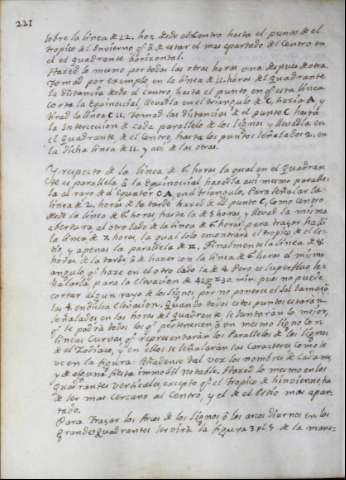 221
sobre la linea de 12. hoz desde el centro hasta el punto de el
tropico del Invierno q̃ à de estar el mas apartado del Centro en
el quadrante horizontal.
Hareis lo mismo por todas las otras horas una despues de otra
Tomad por exemplo, en la linea de 11. horas del quadrante
la distancia desde el centro, hasta el punto, en q̃ esta linea
corta la Equinocial, llevadla en el triangulo de C, hacia A, y
tirad la linea C 11. Tomad las distancias de el punto C hasta
la Interseccion de cada parallelo de los signos y llevadla en
el quadrante de el Centro, hasta los puntos señalados 2. en
la dicha linea de 11. y asi de las otras.
Y respecto de la linea de 6 horas la qual en el quadran
te es parallela à la Equinocial, hareisla asi mismo parale
la al rayo de el equator C A, en el triangulo. Para señalar la
linea de 2. horas de la tarde hareis de el punto C, como centro
desde la linea de 6 horas hasta la de 5 horas, y llevad la misma
abertura al otro lado de la linea de 6 horas para trazar hacia
la linea de 7 horas, la qual solo encontrara el tropico de el es
tio, y apenas la paralela de ♊. Finalmente la linea de 8
horas de la tarde à de hacer con la linea de 6 horas el mismo
angulo q̃ haze en el otro lado la de 4. Pero es superfluo se
ñalarla para la elevacion de 42 gr 22 min. pues no puede
cortar algun rayo de los signos, por no ponerse el sol tan
las 8 en dicha elevacion. Quando todos estos puntos estaran
señalados en las horas del quadrante, se Juntaràn lo mejor,
q̃ se podrà todos los q̃ pertenecen à un mesmo signo con
lineas curvas, q̃ representaràn los Parallelos de los signos
de el Zodiaco, y en ellos se señalaràn los Caracteres como se
ve en la figura. Añadense tal vez los nombres de cada mes,
y de alguna fiesta immobil notable. Hareis lo mesmo en los
quadrantes verticales, excepto q̃ el tropico de hinvierno ha
de ser mas cercano al Centro, y el de el Estio mas apar
tado.
Para trazar los Arcos de los signos, ò los arcos diurnos en los
grandes quadrantes servirà la figura 3 pl 5 de la mane-